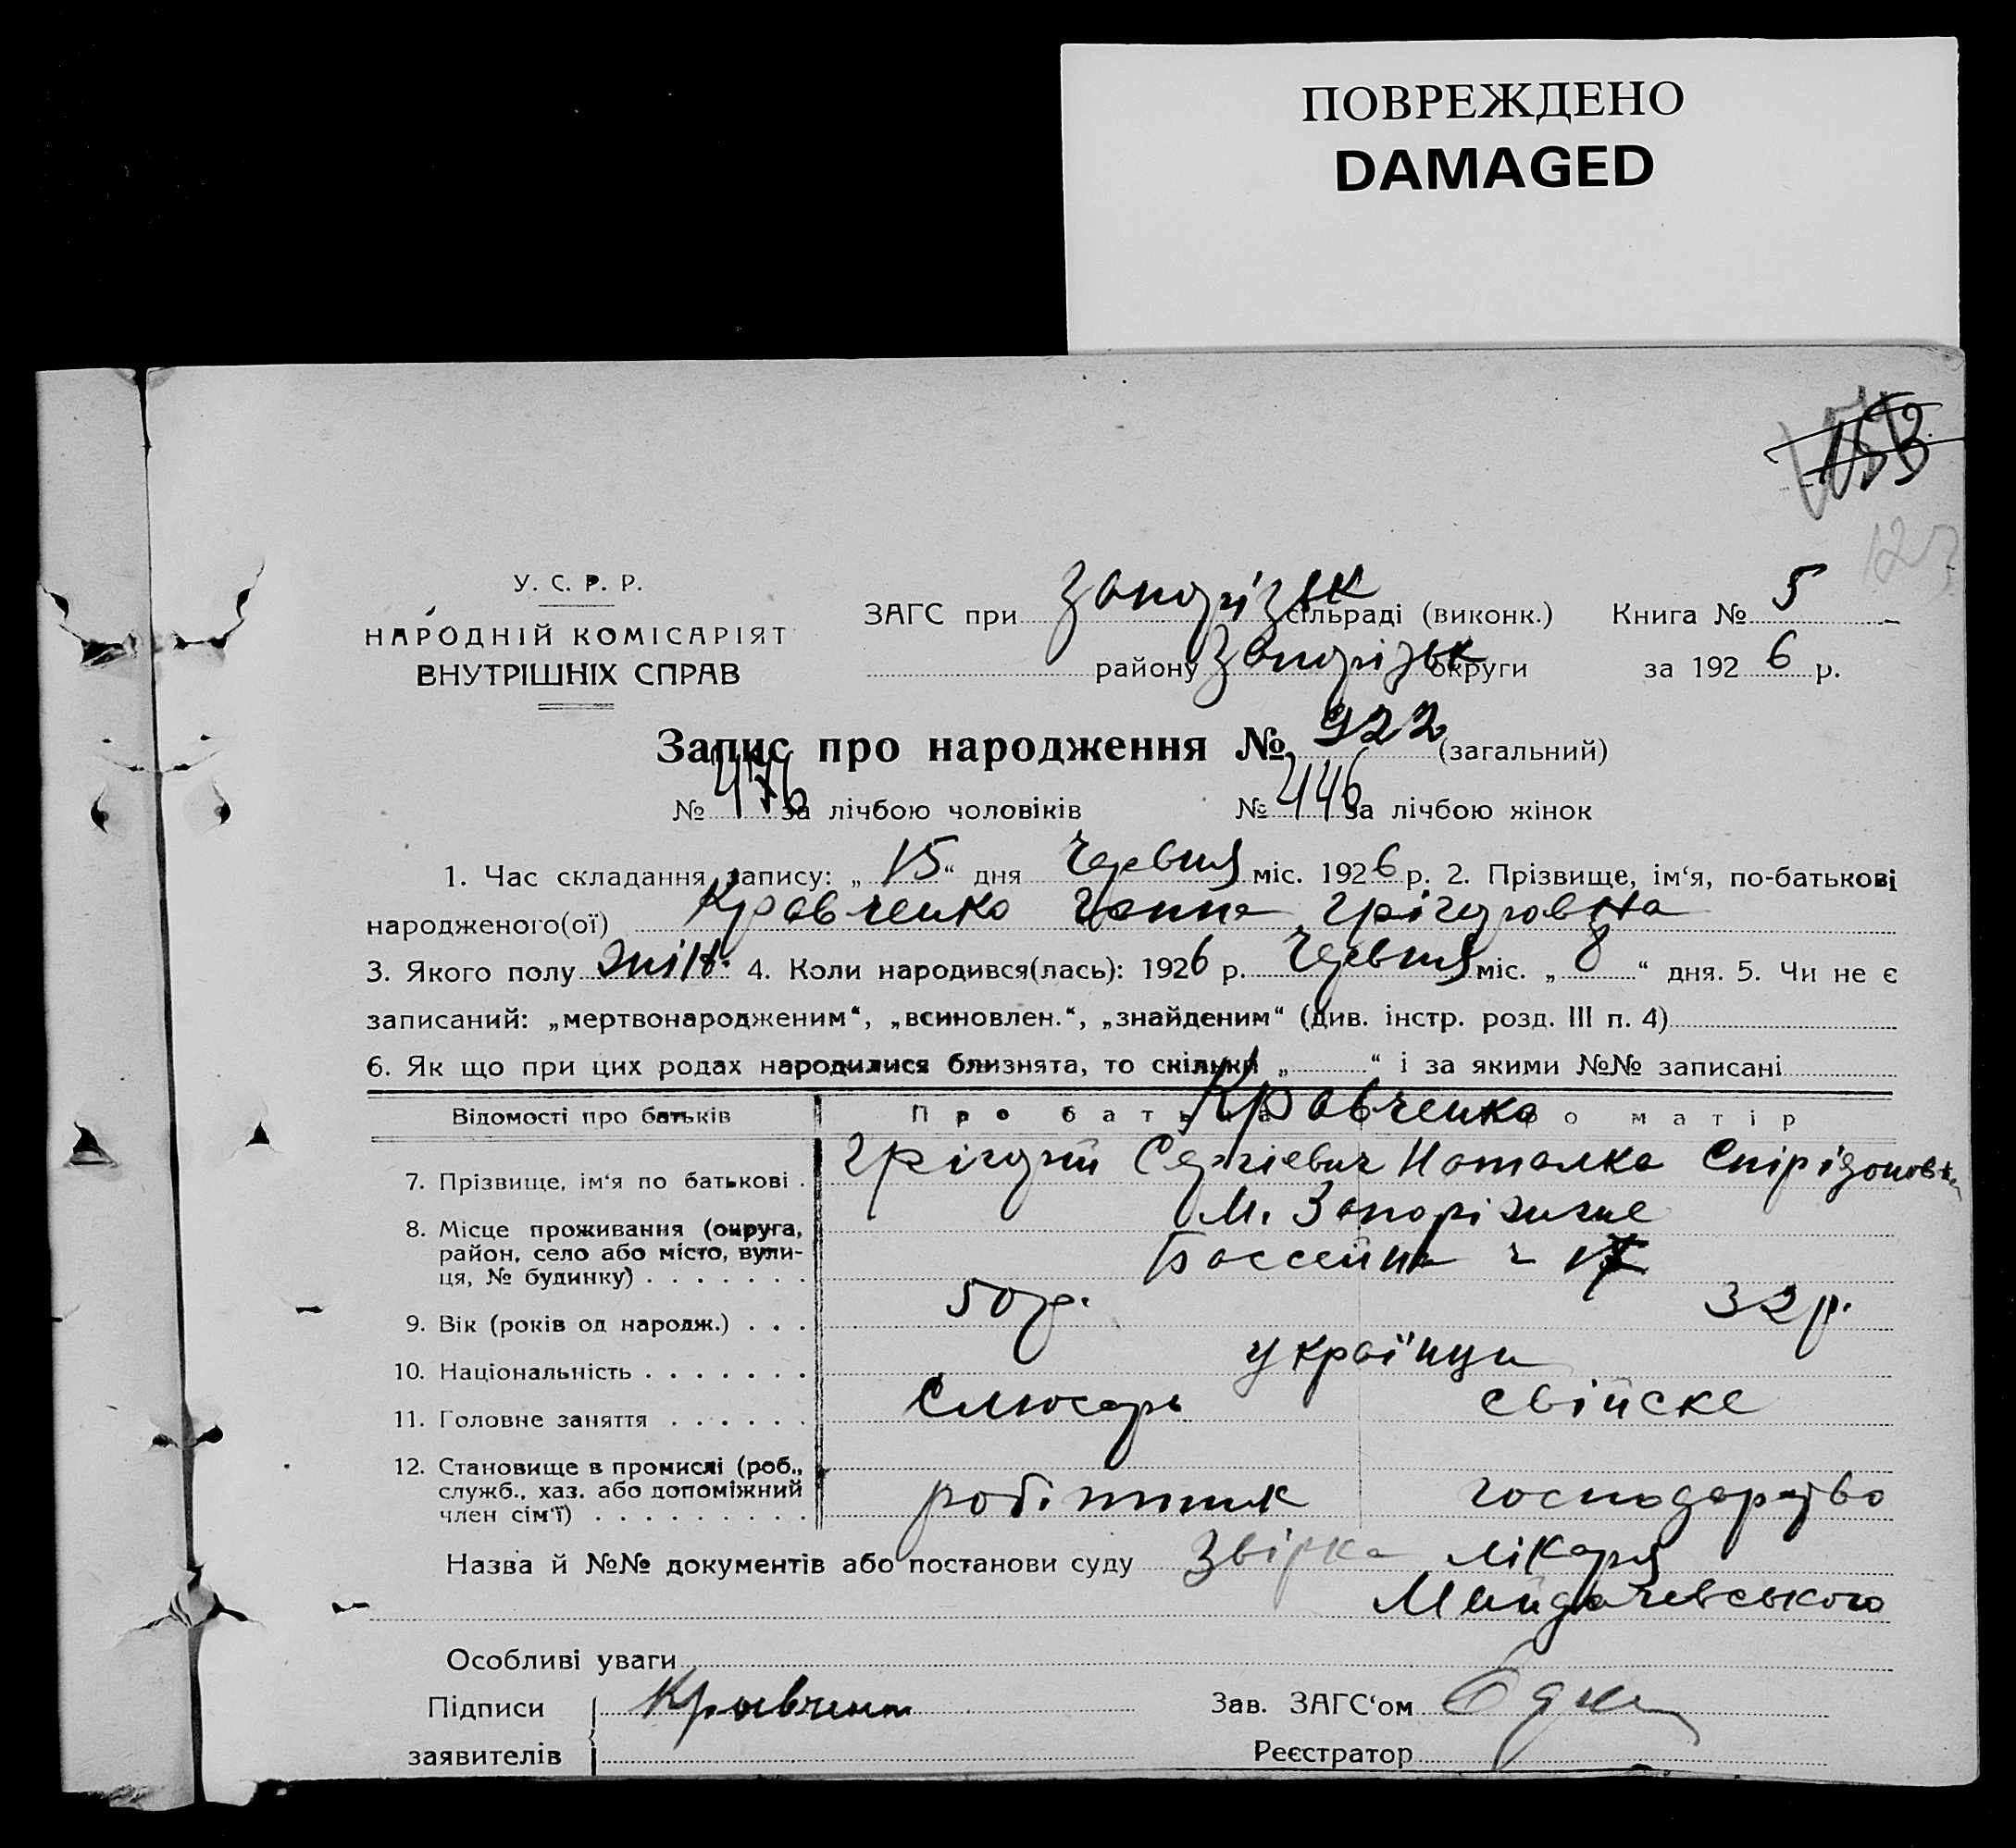 ПОВРЕЖДЕНО
DAMAGED
153
123
У. С. Р. Р.
НАРОДНІЙ КОМІСАРІЯТ
ВНУТРІШНІХ СПРАВ
ЗАГС при Запорізьк сільраді (виконк.) Книга № 5
району Запорізьк округи за 1926 р.
Запис про народження № 922 (загальний)
№ 476 за лічбою чоловіків № 446 за лічбою жінок
1. Час складання запису: „15“ дня Червня міс. 1926 р. 2. Прізвище, ім‘я, по-батькові
народженого(ої) Кравченко Ганна Грігоровна
3. Якого полу жін. 4. Коли народився(лась): 1926 р. Червня міс. „8“ дня. 5. Чи не є
записаний: „мертвонародженим“, „всиновлен.“, „знайденим“ (див. інстр. розд. III п. 4)
6. Як що при цих родах народилися близнята, то скільки „ “ і за якими №№ записані
Відомості про батьків Про батька Про матір
Кравченко
7. Прізвище, ім‘я по батькові . Грігорій Сергієвич Наталка Спірідоновна
8. Місце проживання (округа, район, село або місто, вули-ця, № будинку) . . . . . . . М. Запоріжжє
Бассейна ч 17
9. Вік (років од народж.) . . . 50 р. 32 р.
10. Національність . . . . . . . українци
11. Головне заняття . . . . . . Слюсарь свійске
12. Становище в промислі (роб., служб., хаз. або допоміжний член сім‘ї) . . . . . . . . . робітник господарство
Назва й №№ документів або постанови суду Звірка лікаря
Майдачевського
Особливі уваги
Підписи Кравченко Зав. ЗАГС‘ом
заявителів Реєстратор